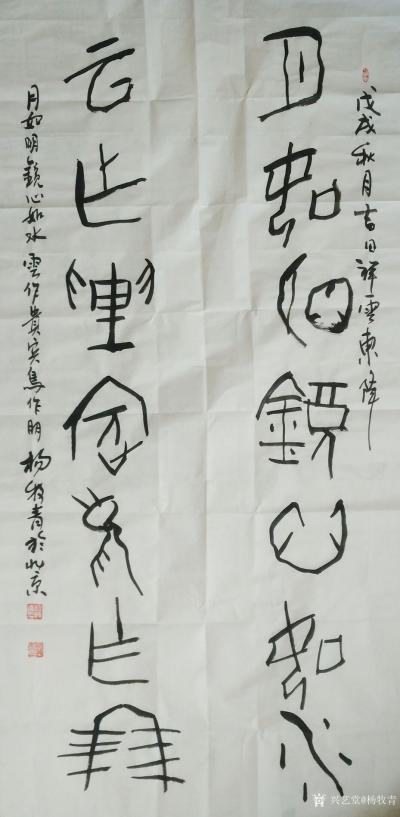 戊戌秋月吉日祥雲東降
月如明鏡心如水
云乍貴賓鳥乍朋
月如明鏡心如水雲作貴賓鳥作朋 杨牧青於北京
兴艺堂@杨牧青